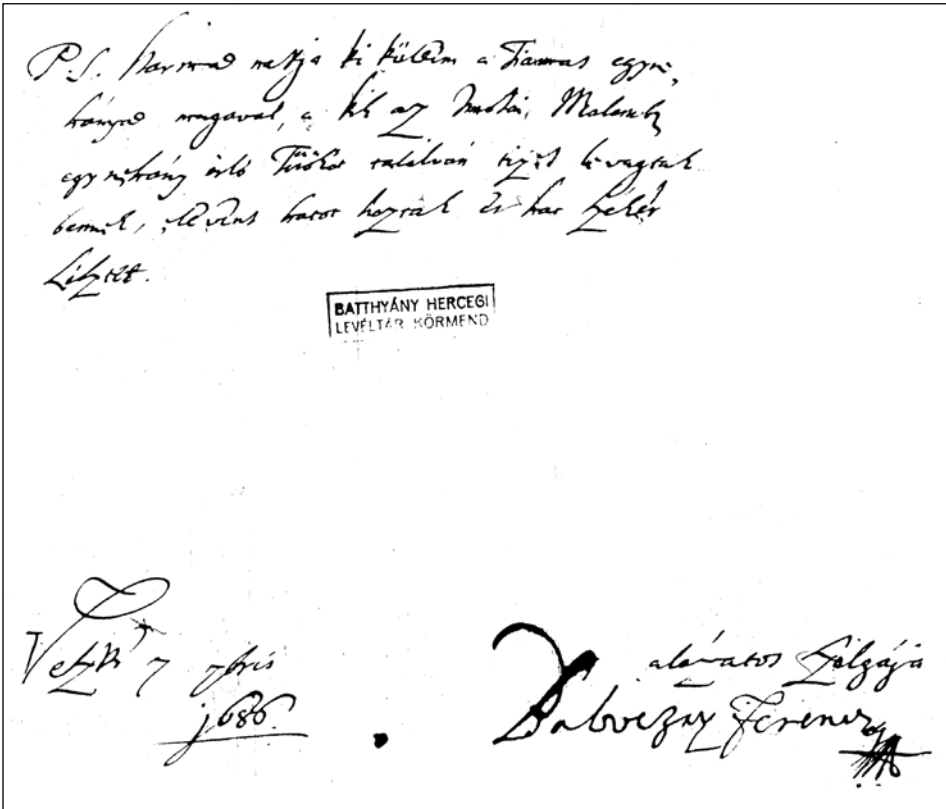 P.S. Harmad napja ki küldém a Fiamat egyne,
hányad magaval, a kik az Malomb
egynehány örlö Török találván tizet levagtak
bennek, elevent hatot hoztak és hat szekér
Lisztet.
BATTHYÁNY HERCEGI
LEVÉLTÁR KÖRMEND
7 7bris
1686.
alázatos Szolgája
Ferencz